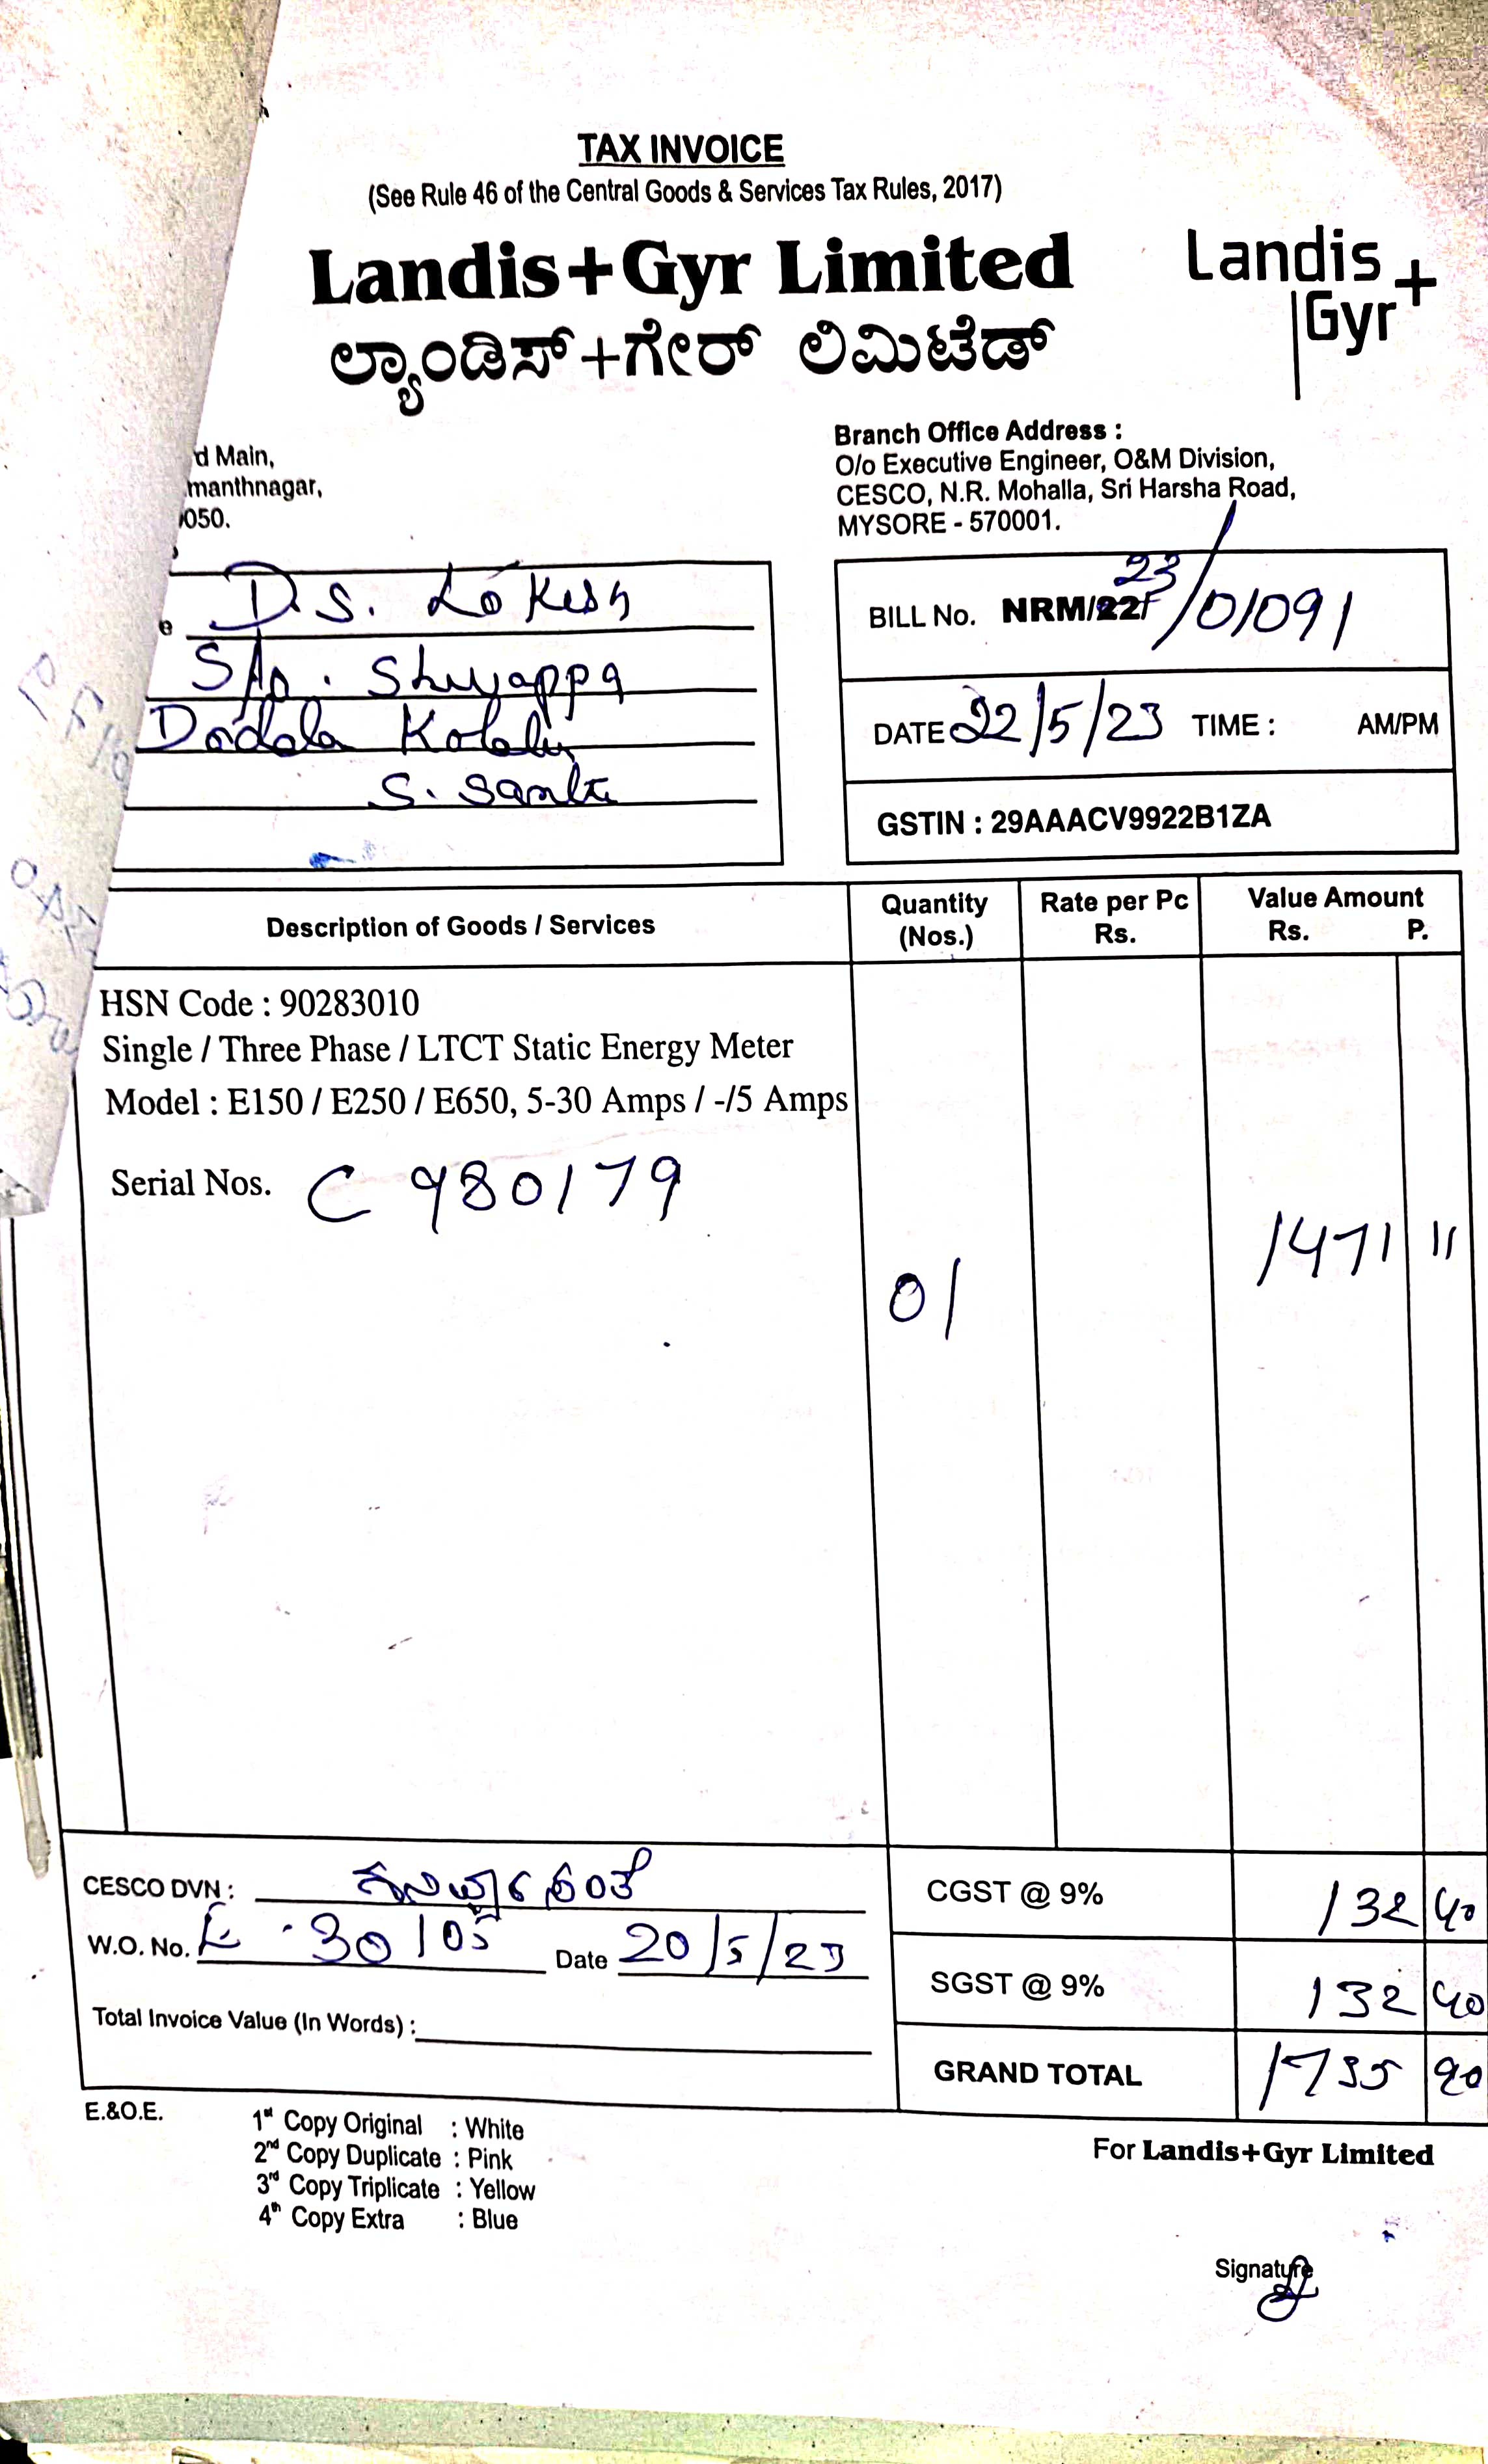 TAX INVOICE
(See Rule 46 of the Central Goods & Services Tax Rules, 2017)
Landis+Gyr Limited
ಲ್ಯಾಂಡಿಸ್+ಗೇರ್ ಲಿಮಿಟೆಡ್
Landis
Gyr+
d Main,
manthnagar,
050.
Branch Office Address :
O/o Executive Engineer, O&M Division,
CESCO, N.R. Mohalla, Sri Harsha Road,
MYSORE - 570001.
e D.S. Lokesh
S/o.
S.
BILL No. NRM/22/ 23/01091
DATE 22/5/23 TIME : AM/PM
GSTIN : 29AAACV9922B1ZA
Description of Goods / Services Quantity (Nos.) Rate per Pc Rs. Value Amount Rs. P.
HSN Code : 90283010
Single / Three Phase / LTCT Static Energy Meter
Model : E150 / E250 / E650, 5-30 Amps / -/5 Amps
Serial Nos. C 980179
01 1471 11
CESCO DVN :
CGST @ 9% 132 40
W.O. No. Date 20/5/23
SGST @ 9% 132 40
Total Invoice Value (In Words) :
GRAND TOTAL 1735 90
E.&O.E.
1st Copy Original : White
2nd Copy Duplicate : Pink
3rd Copy Triplicate : Yellow
4th Copy Extra : Blue
For Landis+Gyr Limited
Signature